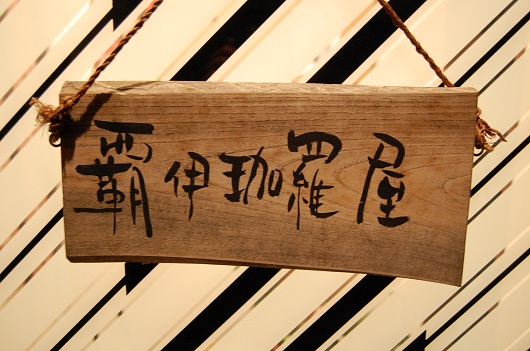 覇伊珈羅屋